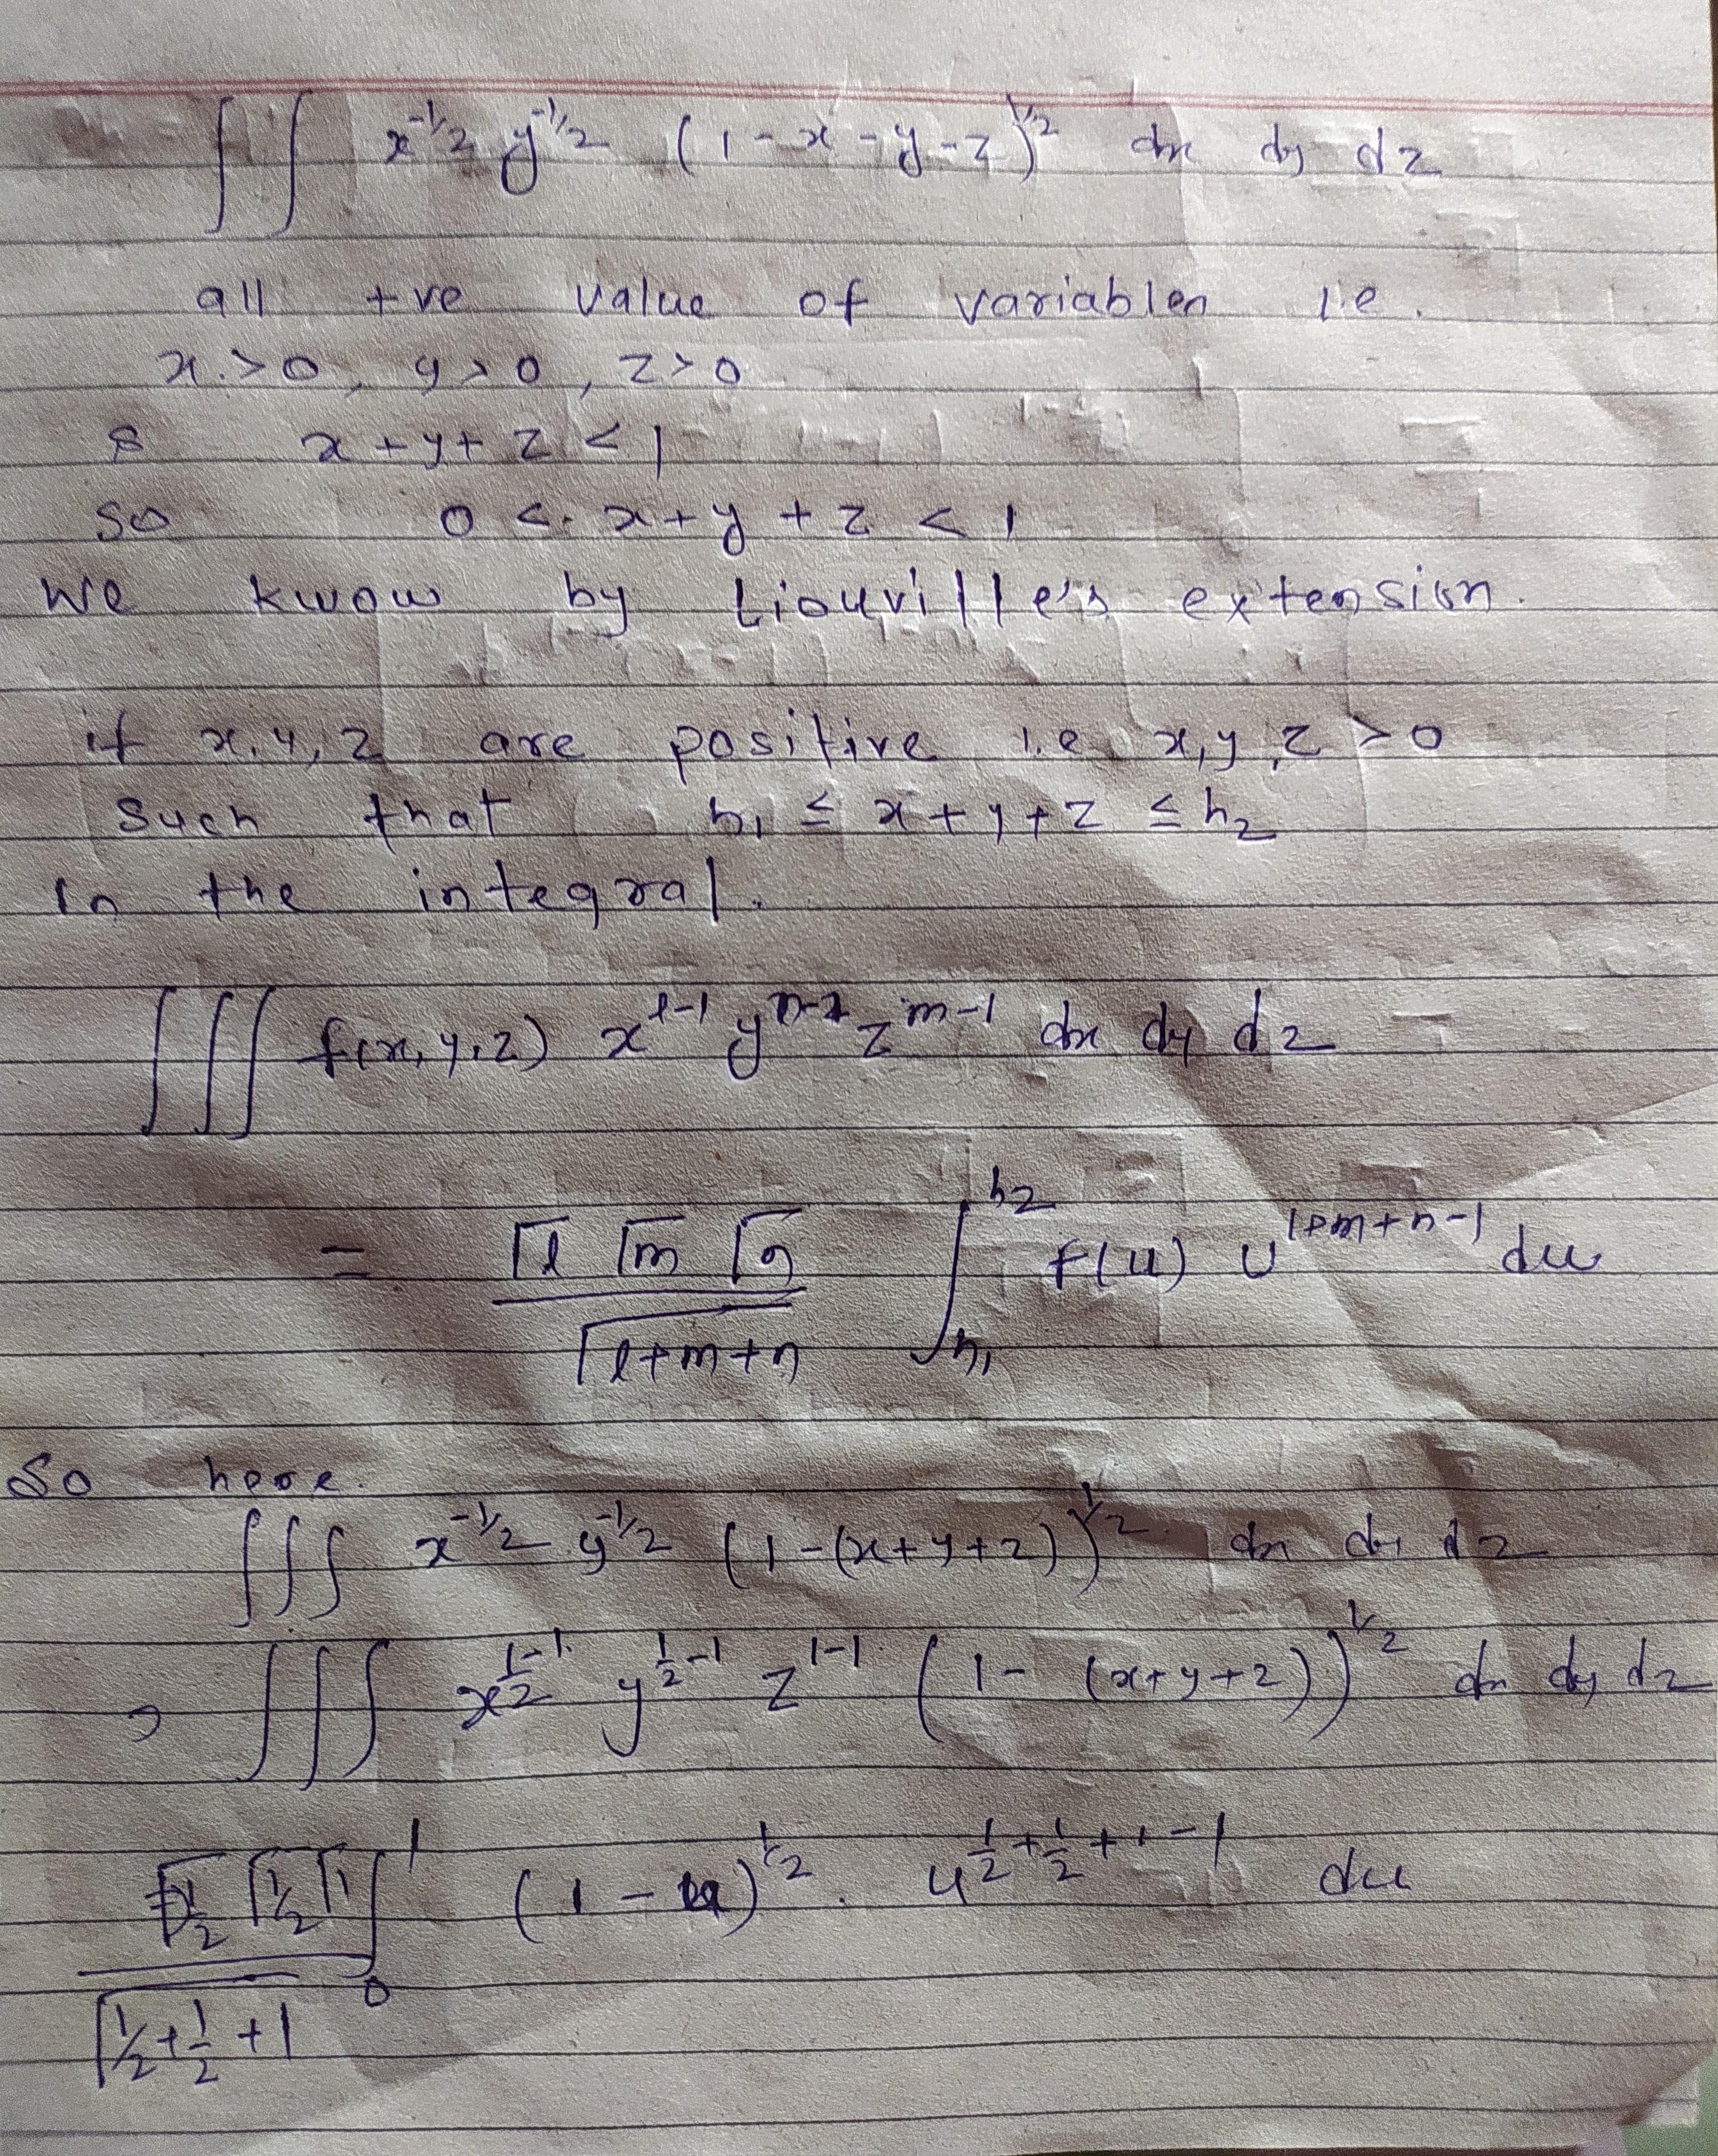 ∫∫ x^{-1/2} y^{-1/2} (1-x-y-z)^{1/2} dx dy dz
all +ve value of variables i.e.
x>0, y>0, z>0
& x+y+z<1
so 0 < x+y+z < 1
We know by Liouville's extension.
if x,y,z are positive i.e x,y,z >0
such that h₁ ≤ x+y+z ≤ h₂
In the integral.
∫∫∫ f(x,y,z) x^{l-1} y^{n-1} z^{m-1} dx dy dz
= Γl Γm Γn / Γl+m+n ∫_{h₁}^{h₂} f(u) u^{l+m+n-1} du
So here.
∫∫∫ x^{-1/2} y^{-1/2} (1-(x+y+z))^{1/2} dx dy dz
, ∫∫∫ x^{1/2-1} y^{1/2-1} z^{1-1} (1-(x+y+z))^{1/2} dx dy dz
Γ1/2 Γ1/2 Γ1 / Γ1/2+1/2+1 ∫_0^1 (1-u)^{1/2} . u^{1/2+1/2+1-1} du